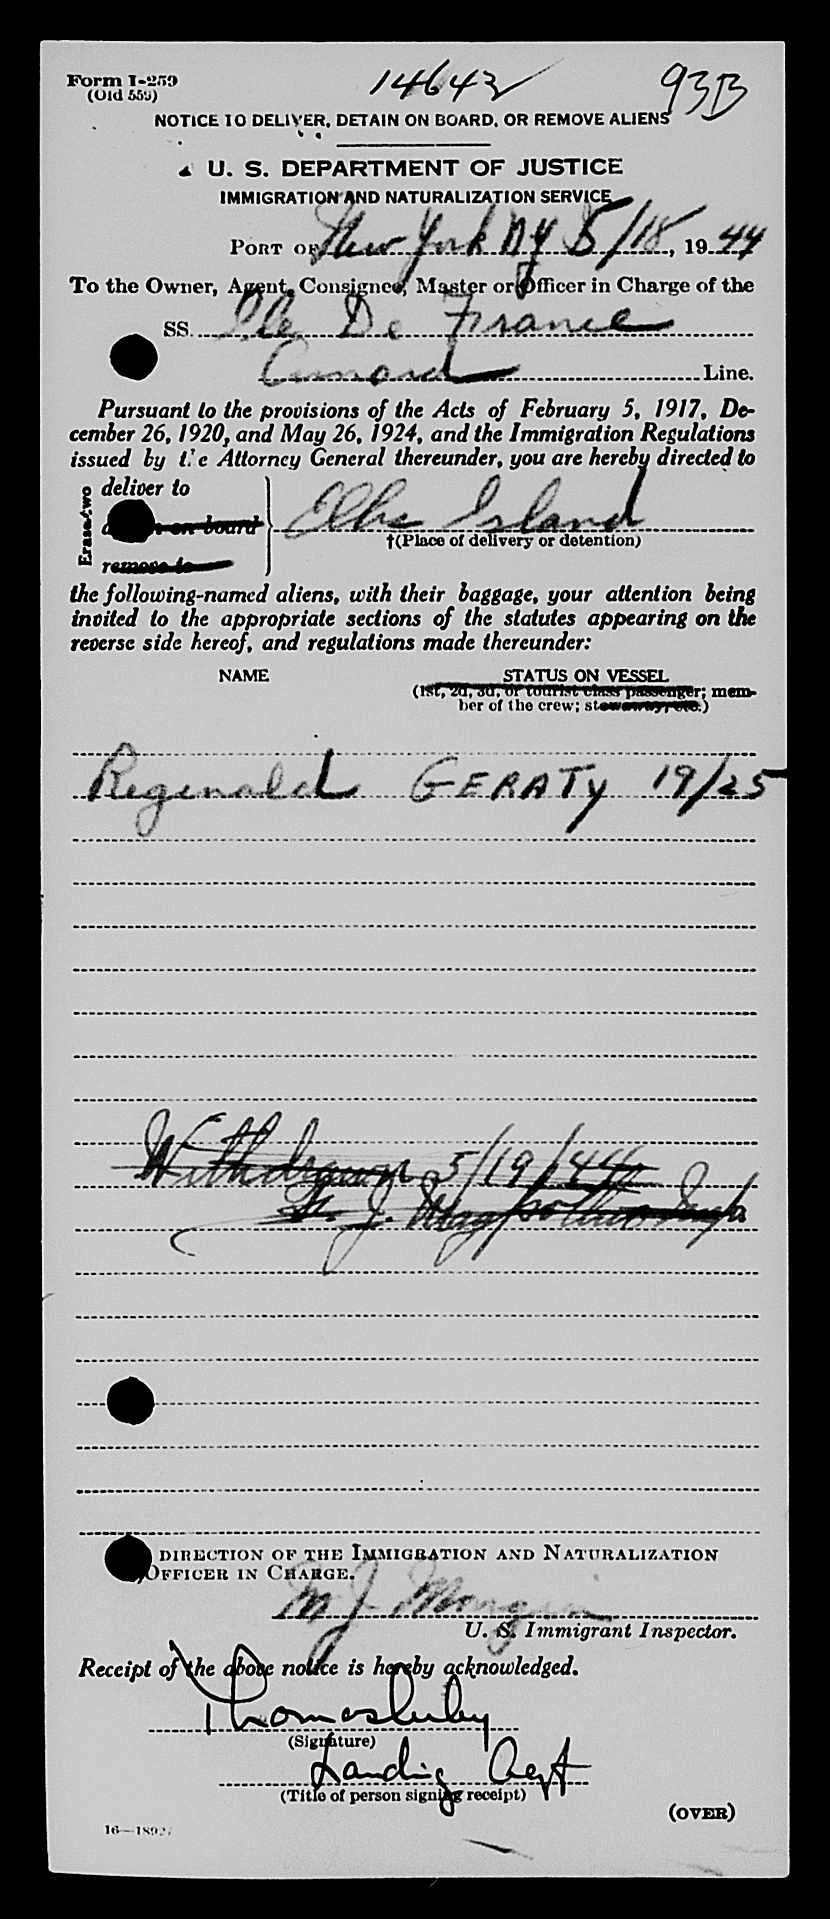 Form I-259
(Old 559)
14643
93B
NOTICE TO DELIVER, DETAIN ON BOARD, OR REMOVE ALIENS
U. S. DEPARTMENT OF JUSTICE
IMMIGRATION AND NATURALIZATION SERVICE
PORT OF New York NY 5/18, 1944
To the Owner, Agent, Consignee, Master or Officer in Charge of the
SS. Ile De France
Cunard Line.
Pursuant to the provisions of the Acts of February 5, 1917, De-
cember 26, 1920, and May 26, 1924, and the Immigration Regulations
issued by the Attorney General thereunder, you are hereby directed to
Erase two
deliver to
on board
remove to
Ellis Island
†(Place of delivery or detention)
the following-named aliens, with their baggage, your attention being
invited to the appropriate sections of the statutes appearing on the
reverse side hereof, and regulations made thereunder:
NAME STATUS ON VESSEL
(1st, 2d, 3d, or tourist class passenger; mem-
ber of the crew; stowaway, etc.)
Reginald GERATY 19/25
Withdrawn 5/19/44
DIRECTION OF THE IMMIGRATION AND NATURALIZATION
OFFICER IN CHARGE.
M J
U. S. Immigrant Inspector.
Receipt of the above notice is hereby acknowledged.
Thomas
(Signature)
Landing Agt
(Title of person signing receipt)
(OVER)